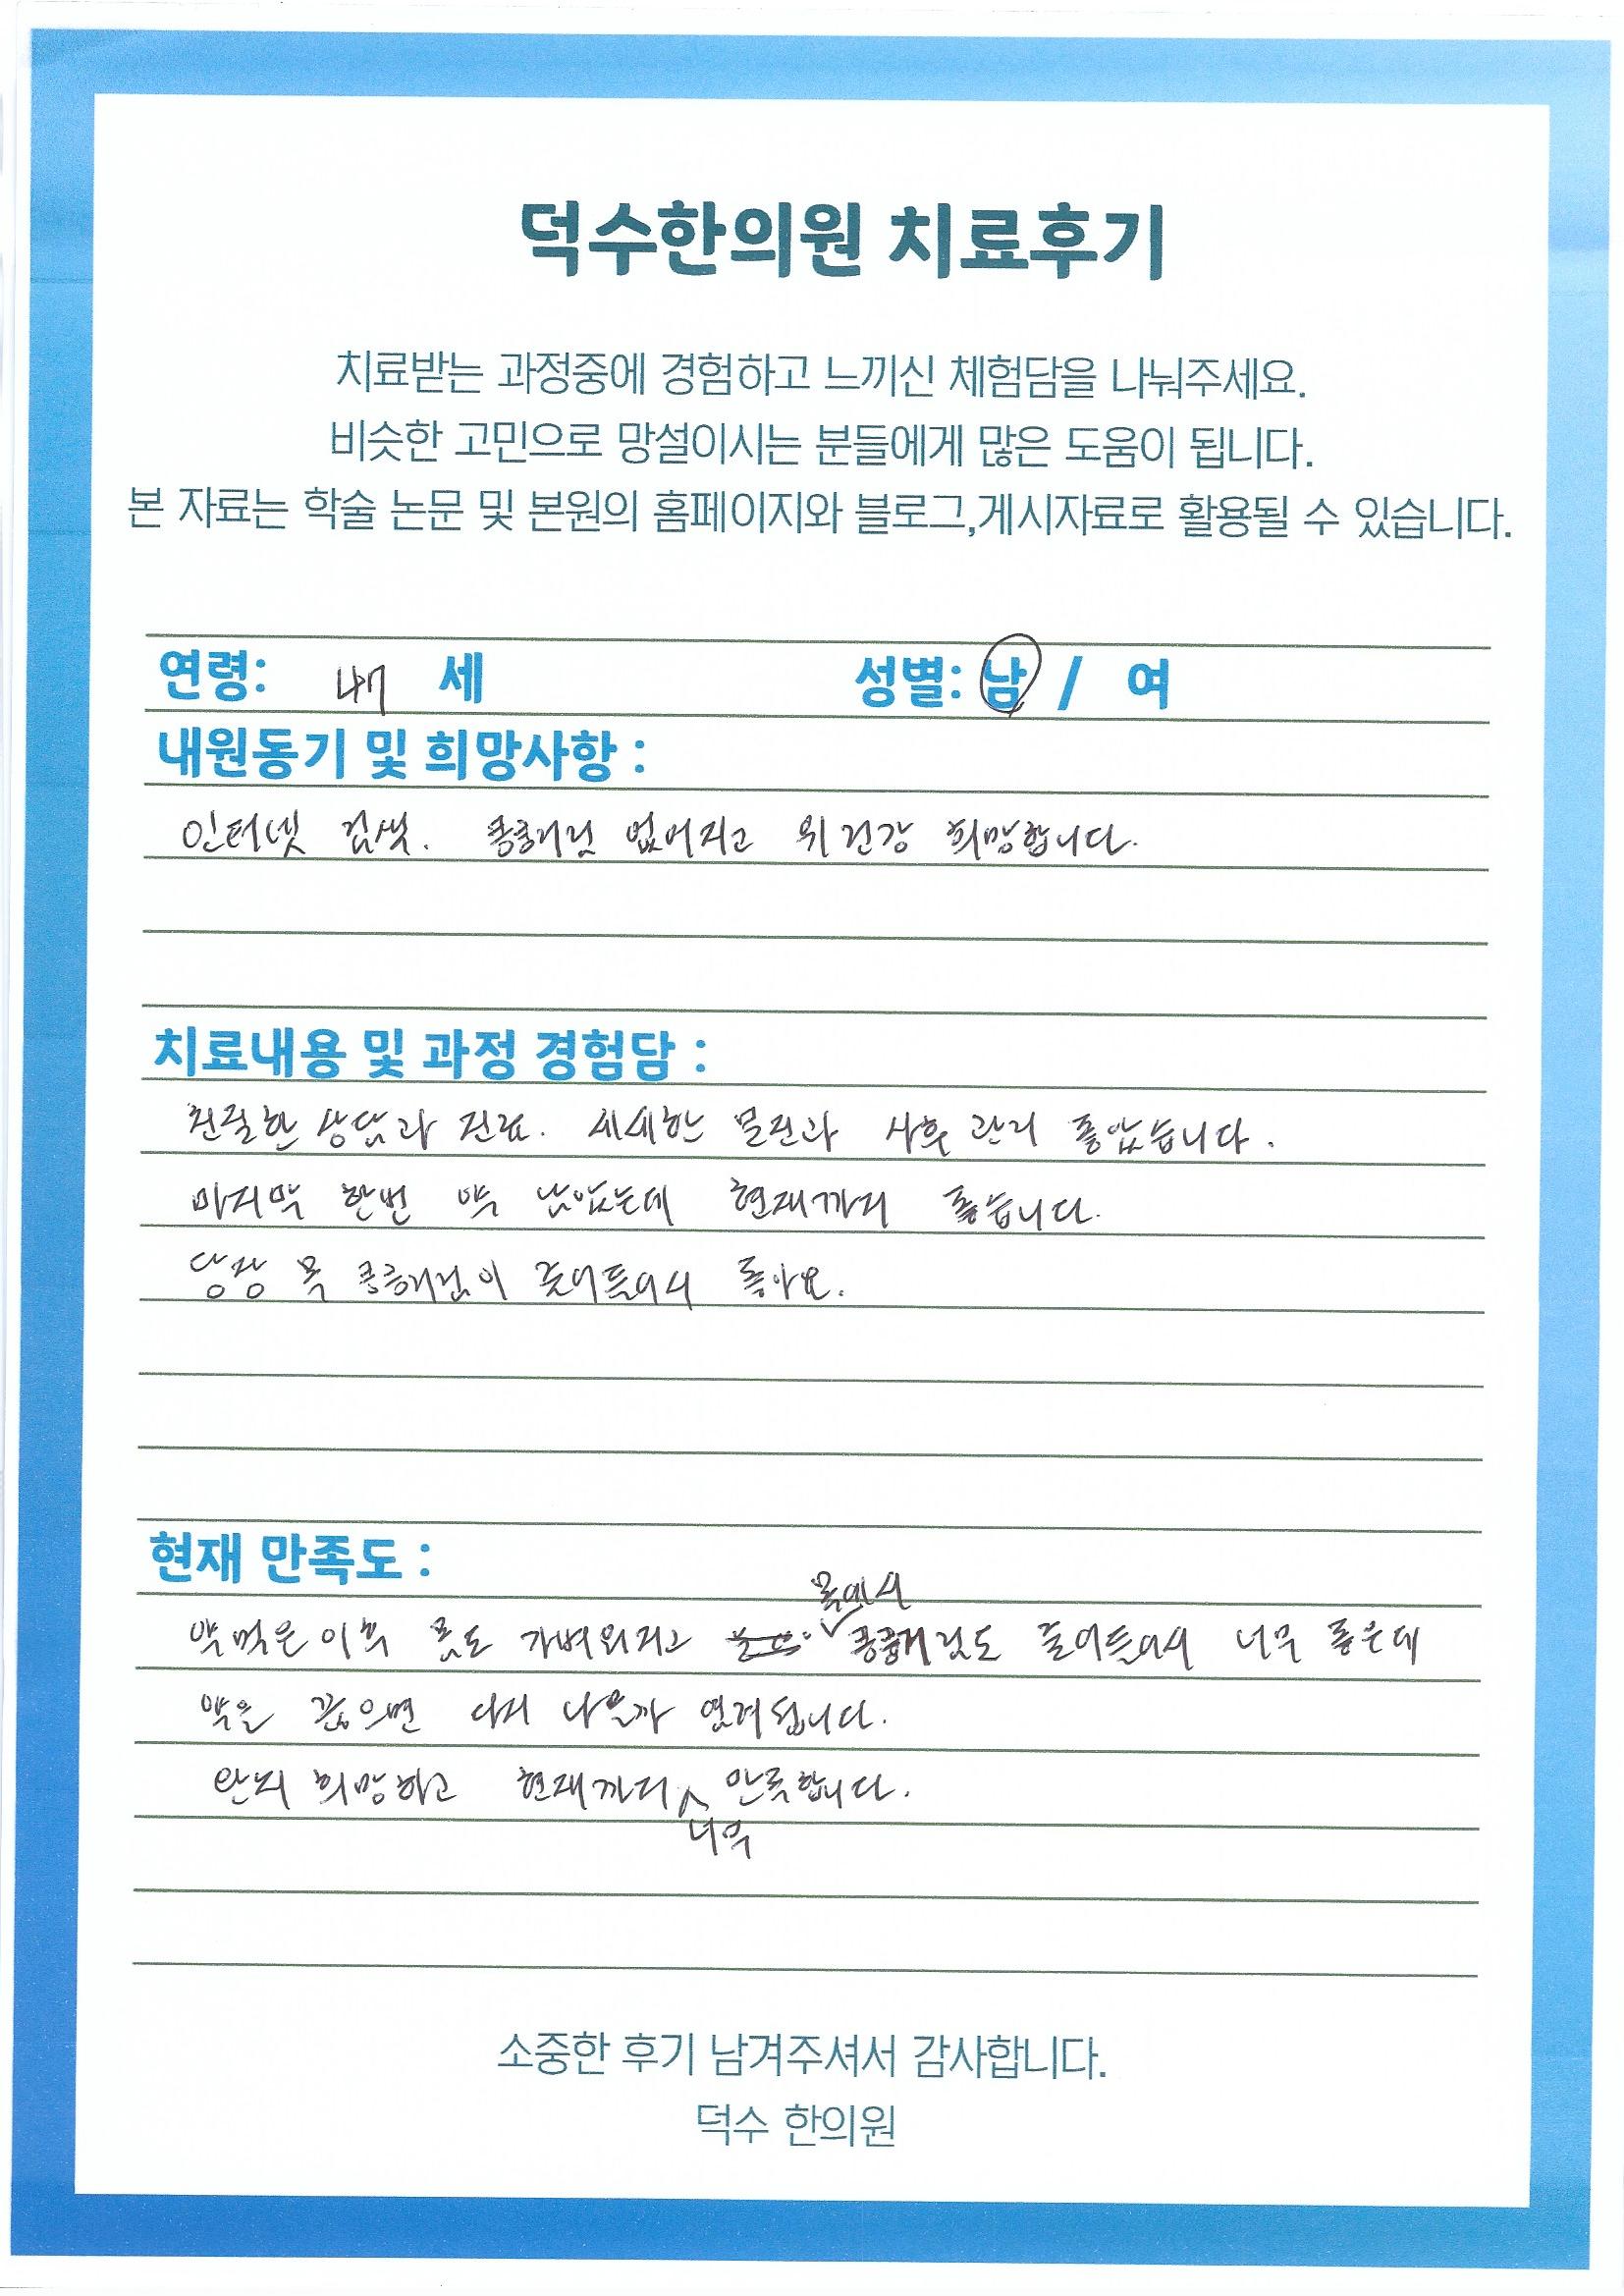 덕수한의원 치료후기
치료받는 과정중에 경험하고 느끼신 체험담을 나눠주세요.
비슷한 고민으로 망설이시는 분들에게 많은 도움이 됩니다.
본 자료는 학술 논문 및 본원의 홈페이지와 블로그,게시자료로 활용될 수 있습니다.
연령: 47 세 성별: 남 / 여
내원동기 및 희망사항 :
인터넷 검색. 킁킁거림 없어지고 위 건강 희망합니다.
치료내용 및 과정 경험담 :
친절한 상담과 진료. 세세한 문진과 사후 관리 좋았습니다.
마지막 한번 약 남았는데 현재까지 좋습니다.
당장 목 킁킁거림이 줄어들어서 좋아요.
현재 만족도 :
목에서
약 먹은 이후 몸도 가벼워지고 킁킁거림도 줄어들어서 너무 좋은데
약을 끊으면 다시 나올까 염려됩니다.
완치 희망하고 현재까지 만족합니다.
너무
소중한 후기 남겨주셔서 감사합니다.
덕수 한의원